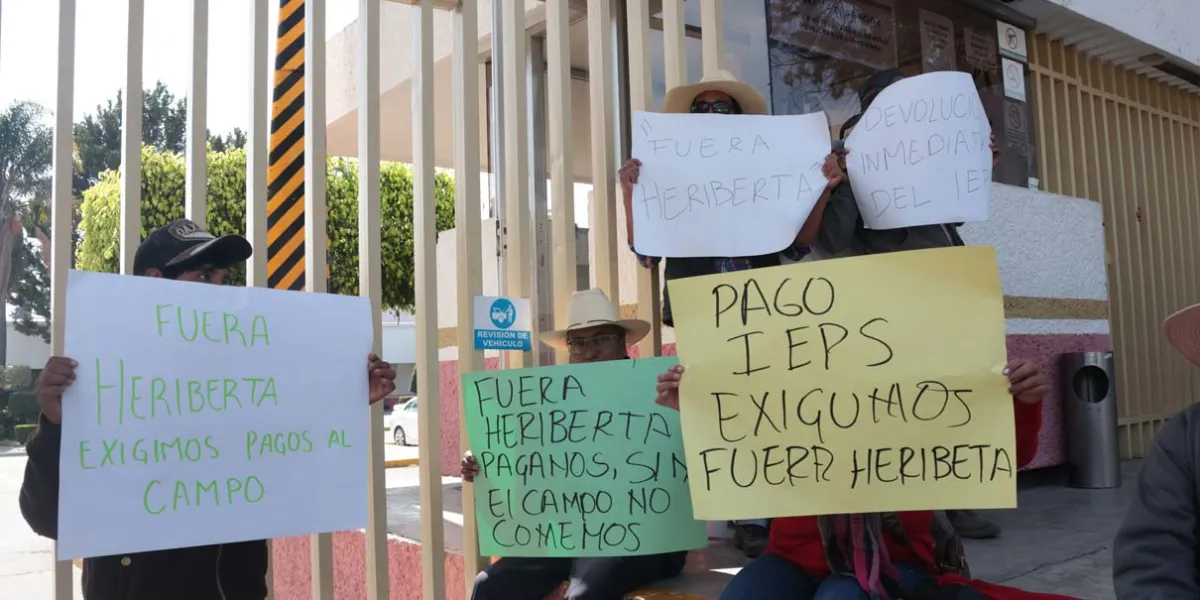 "FUERA
HERIBERTA"
DEVOLUCIO
INMEDIATA
DEL IE
FUERA
HERIBERTA
EXIGIMOS PAGOS AL
CAMPO
REVISIÓN DE
VEHÍCULO
FUERA
HERIBERTA
PAGANOS, SIN
EL CAMPO NO
COMEMOS
PAGO
IEPS
EXIGUMOS
FUERA HERIBETA